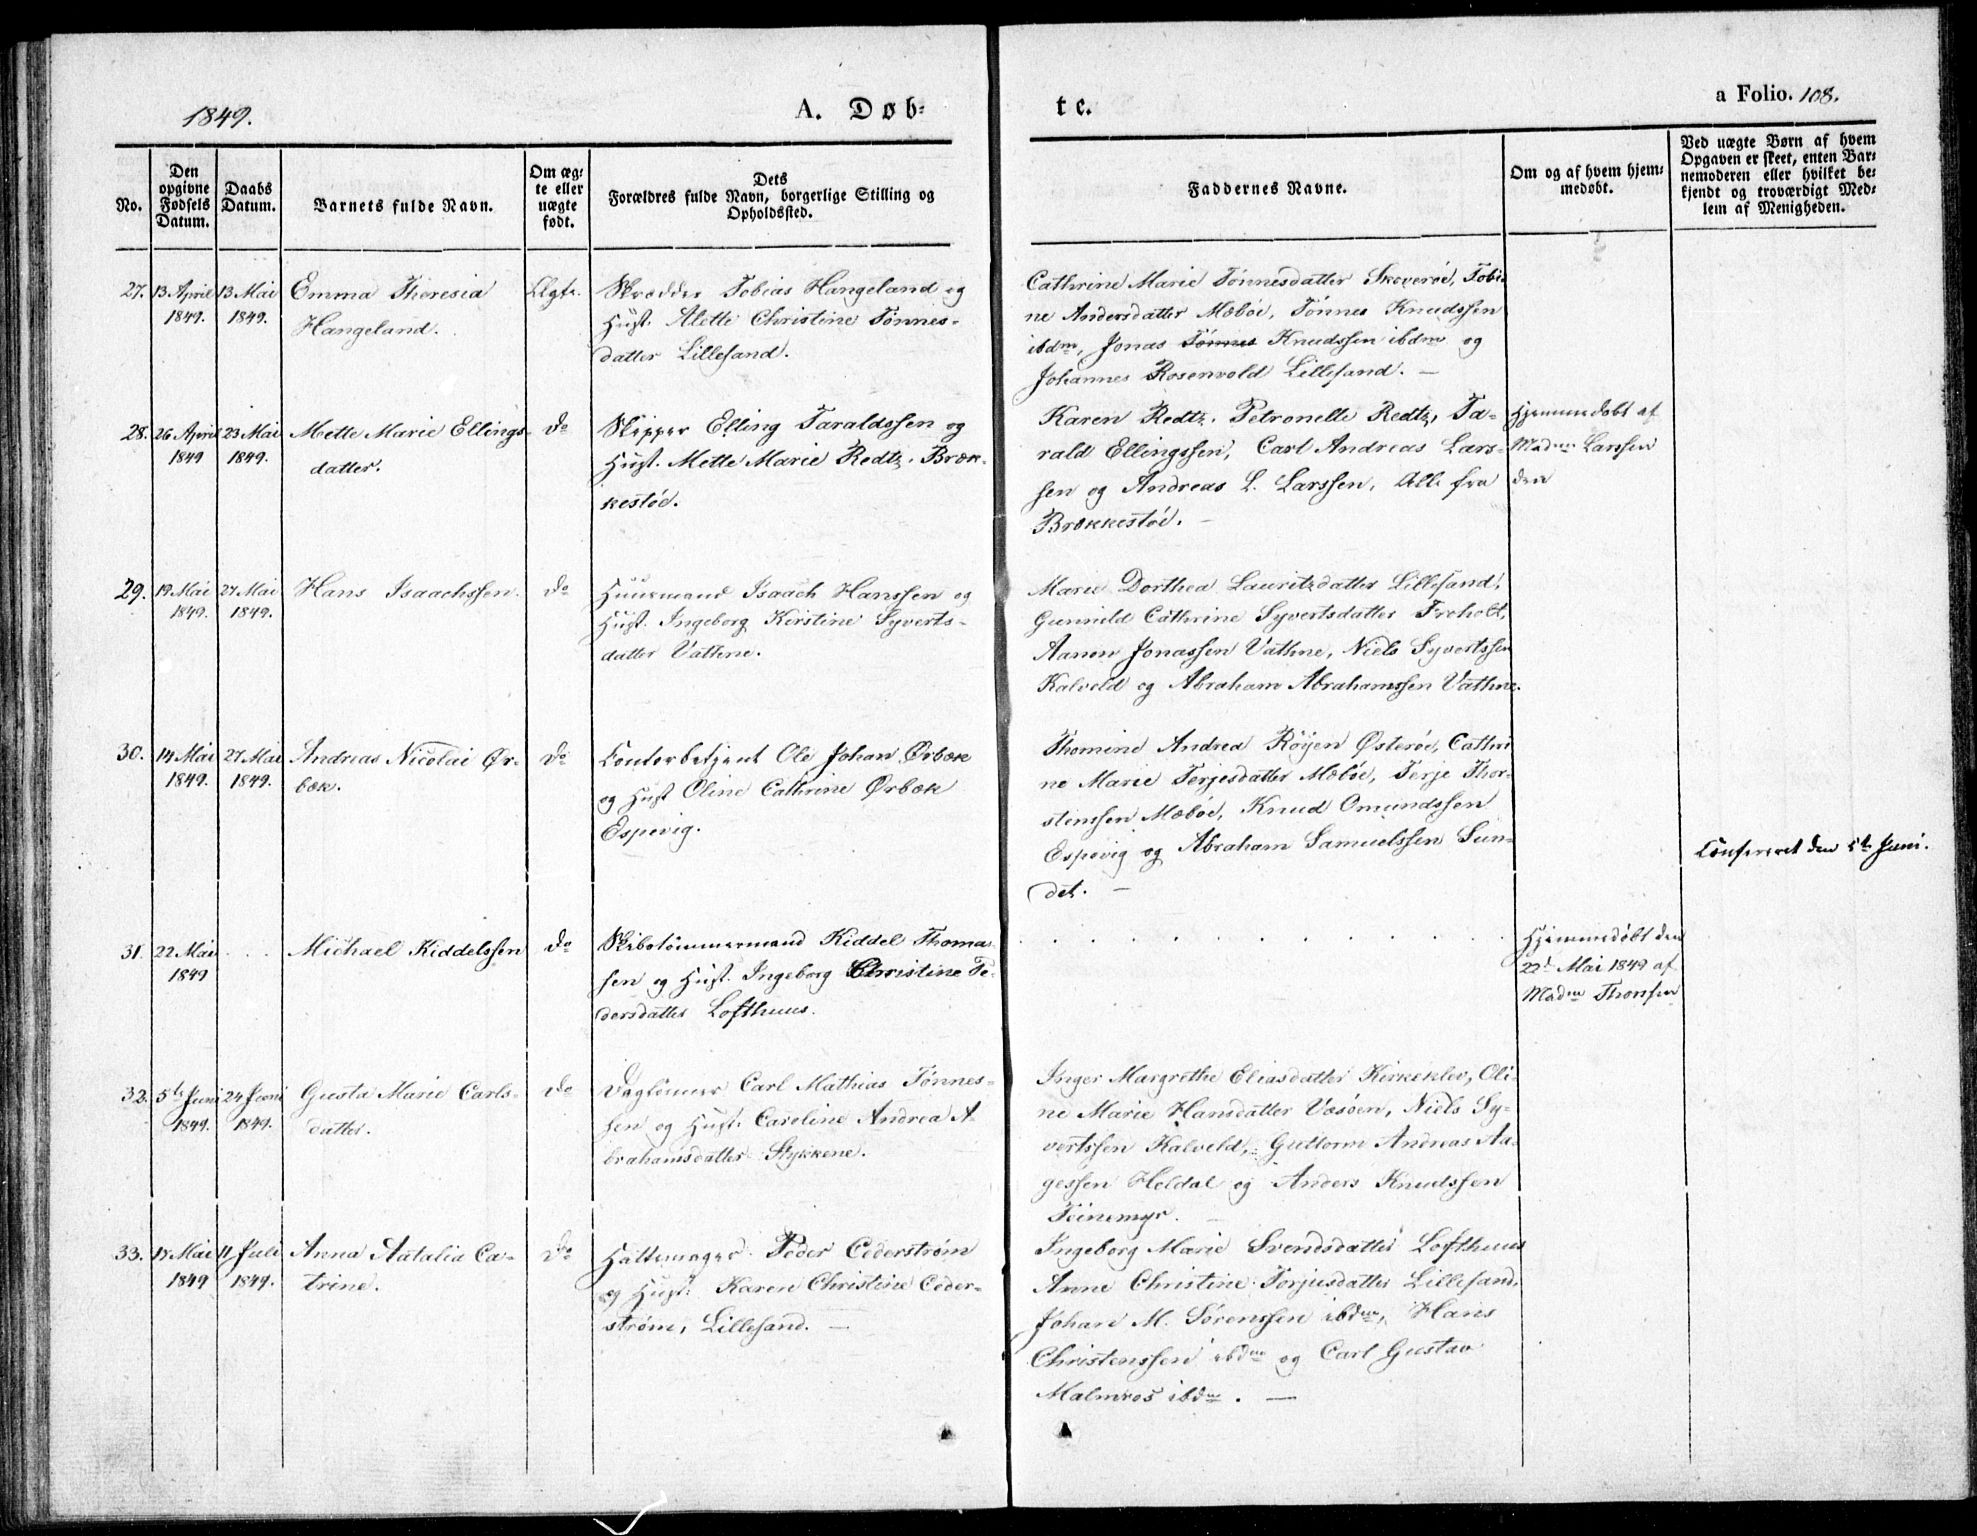 1849.
A. Døb-
te.
a Folio. 108.
No.
Den opgivne Fødsels Datum.
Daabs Datum.
Barnets fulde Navn.
Om æg-
te eller
uægte
født.
Dets
Forældres fulde Navn, borgerlige Stilling og
Opholdssted.
Faddernes Navne.
Om og af hvem hjem-
medøbt.
Ved uægte Børn af hvem
Opgaven er skeet, enten Bar-
nemoderen eller hvilket be-
kjendt og troværdigt Med-
lem af Menigheden.
27.
13 April
1849.
13 Mai
1849.
Emma Theresia
Hangeland.
Ægte.
Skrædder Tobias Hangeland og
Hust. Alette Christine Tønnes-
datter Lillesand.
Cathrine Marie Tønnesdatter Skoverøe, Tobi-
ne Andersdatter Mæbøe, Tønnes Knudssen
ibdm, Jonas Tønnes Knudssen ibdm og
Johannes Rosenvold Lillesand. —
28.
26 April
1849
23 Mai
1849.
Mette Marie Ellings-
datter.
do
Skipper Elling Taraldssen og
Hust. Mette Marie Redtz. Bræk-
kestøe.
Karen Redtz. Petronelle Redtz, Ta-
rald Ellingssen, Carl Andreas Lars-
sen og Andreas L. Larssen, Alle fra
Brækkestøe. —
Hjemmedøbt af
Madm Larssen
den
29.
19 Mai
1849.
27 Mai
1849.
Hans Isaachssen.
do
Huusmand Isaach Hanssen og
Hust. Ingeborg Kirstine Syverts-
datter Vathne.
Marie Dorthea Lauritzdatter Lillesand,
Gunnild Cathrine Syvertsdatter Froholt,
Aanon Jonassen Vathne, Niels Syvertssen
Kalveld og Abraham Abrahamssen Vathne.
30.
14 Mai
1849.
27 Mai
1849.
Andreas Nicolai Ør-
bæk.
do
Contorbetjent Ole Johan Ørbæk
og Hust Oline Cathrine Ørbæk
Espevig.
Thomine Andrea Røyen Østerøe, Cathri
ne Marie Terjesdatter Mæbøe, Terje Thor-
stenssen Mæbøe, Knud Omundssen
Espevig og Abraham Samuelssen Sun-
det. —
Confereret den 5te Juni.
31.
22 Mai
1849
. . .
Michael Kiddelssen
do
Skibstømmermand Kiddel Thoma-
sen og Hust. Ingeborg Christine Pe-
dersdatter Lofthuus.
Hjemmedøbt den
22d Mai 1849 af
Madm Thomsen
32.
5te Juni
1849.
24 Juni
1849.
Gusta Marie Carls-
datter.
do
Dagleiner Carl Mathias Tønnes-
sen og Hust. Caroline Andrea A-
brahamsdatter Stykkene.
Inger Margrethe Eliasdatter Kirkeklev, Oli-
ne Marie Hansdatter Væsøen, Niels Sy-
vertssen Kalveld, Guttorm Andreas Aa-
gessen Heldal og Anders Knudssen
Teinemyr. —
33.
17 Mai
1849
11 Juli
1849.
Anna Aatalia Ca-
trine.
do
Hattemager Peder Cederstrøm
og Hust. Karen Christine Ceder-
strøm, Lillesand. —
Ingeborg Marie Svendsdatter Lofthuus
Anne Christine Torjusdatter Lillesand,
Johan M. Sørenssen ibdm, Hans
Christenssen ibdm og Carl Gustav
Malmros ibdm. —